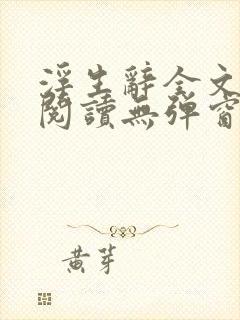 浮生辭全文
閱讀無彈窗
黃芽